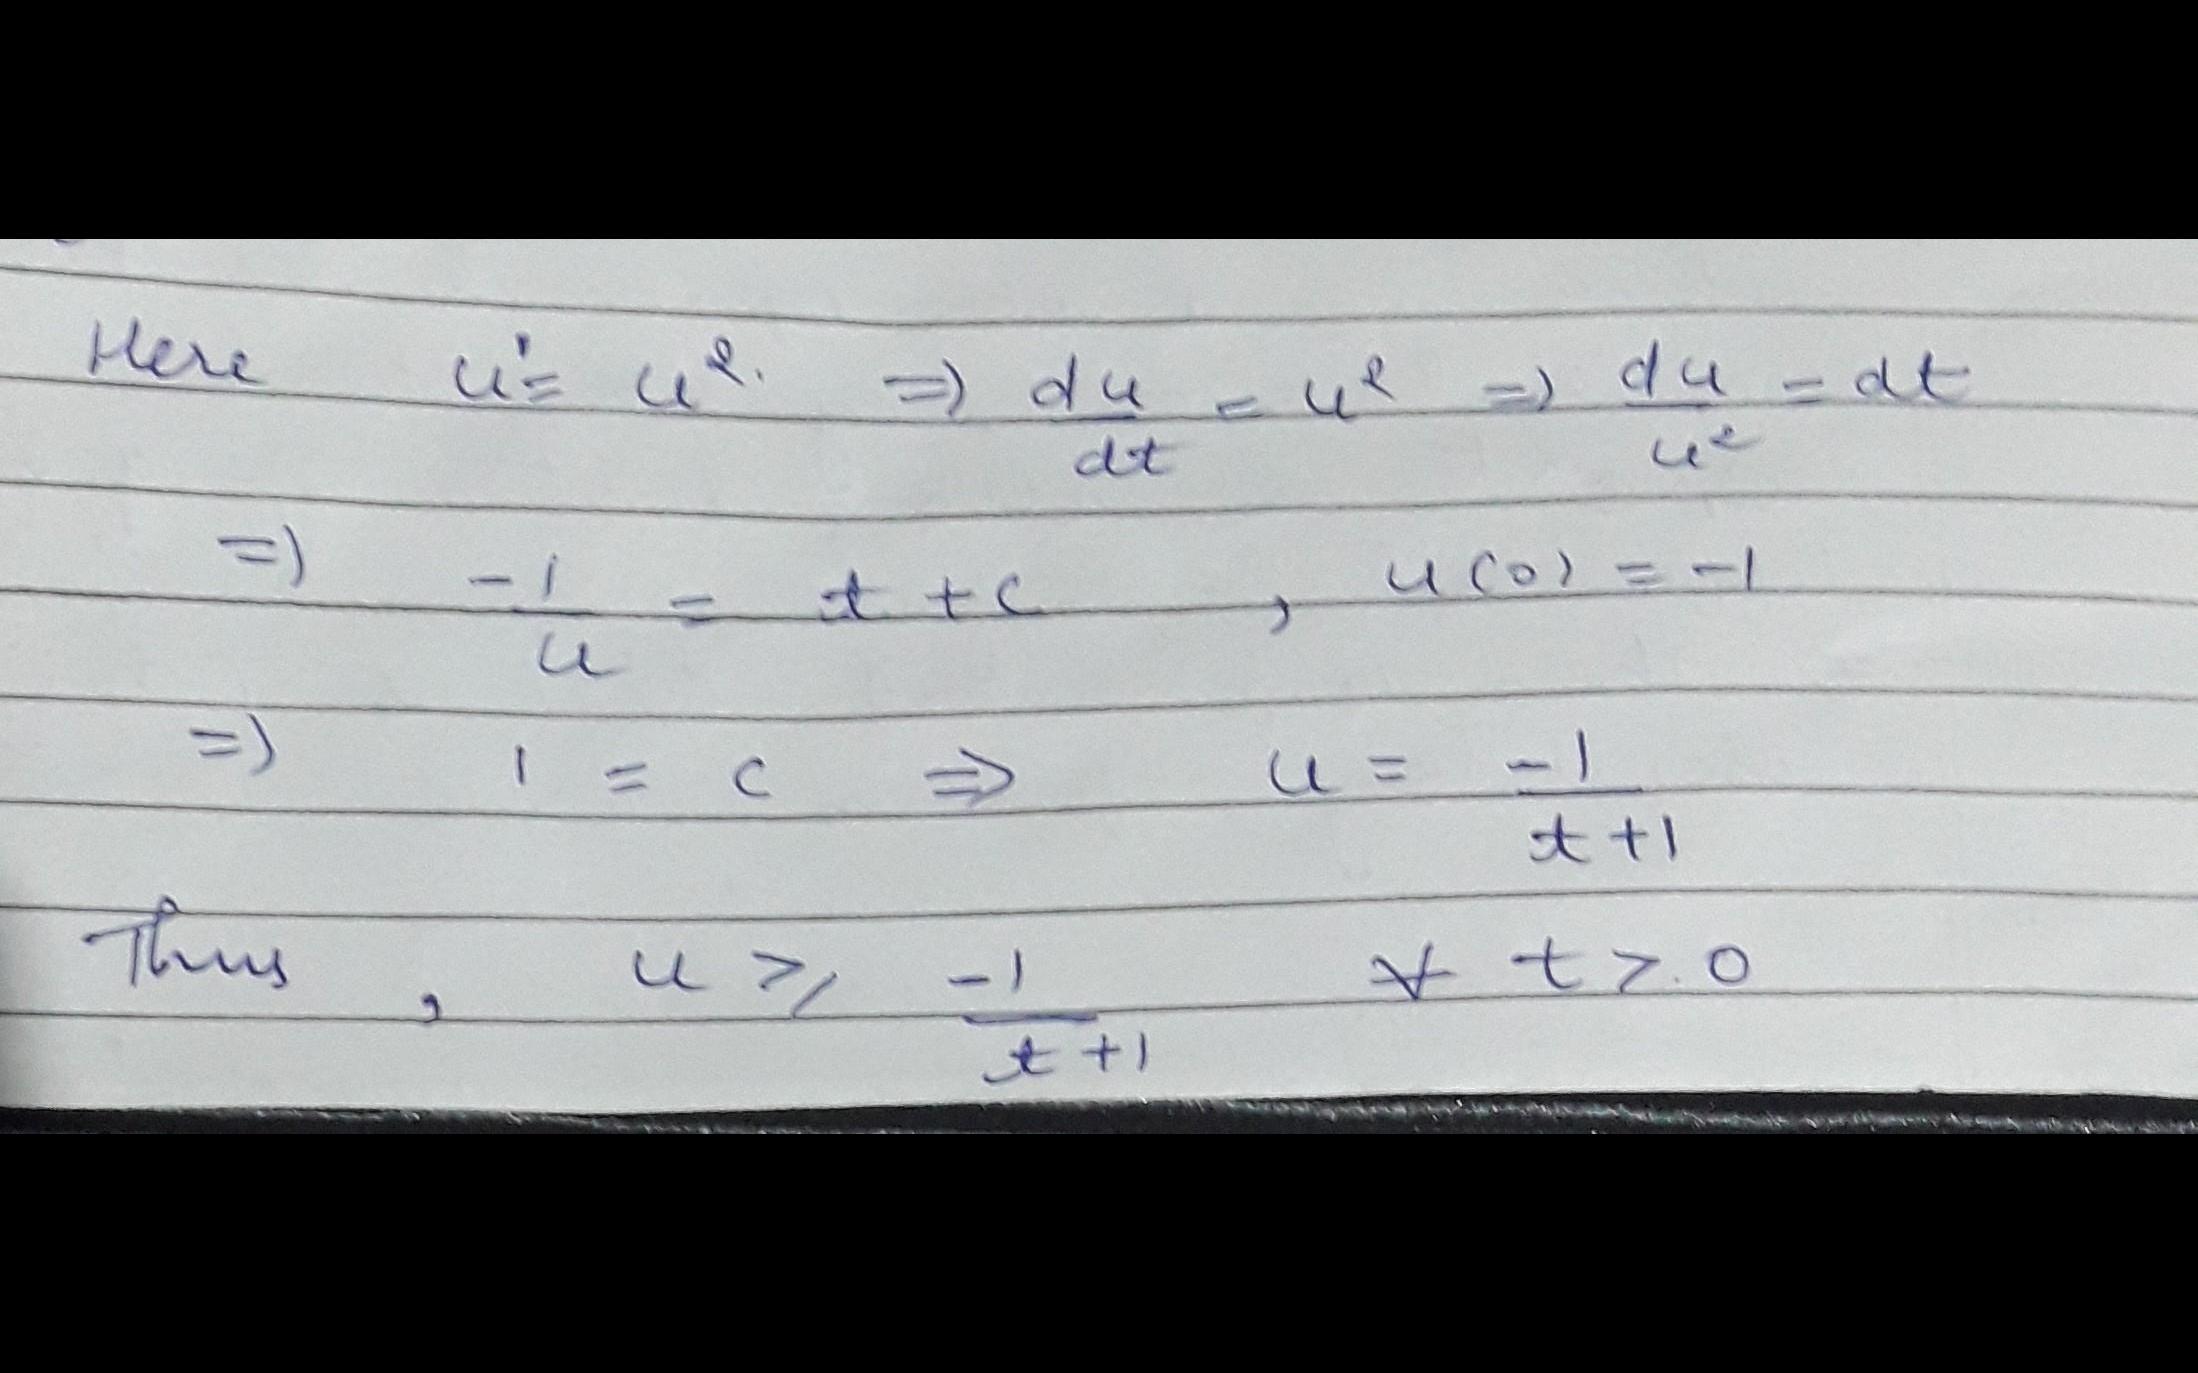 Here u' = u². => du/dt = u² => du/u² = dt
=> -1/u = t + c , u(0) = -1
=> 1 = c => u = -1/(t+1)
Thus, u ≥ -1/(t+1) ∀ t > 0